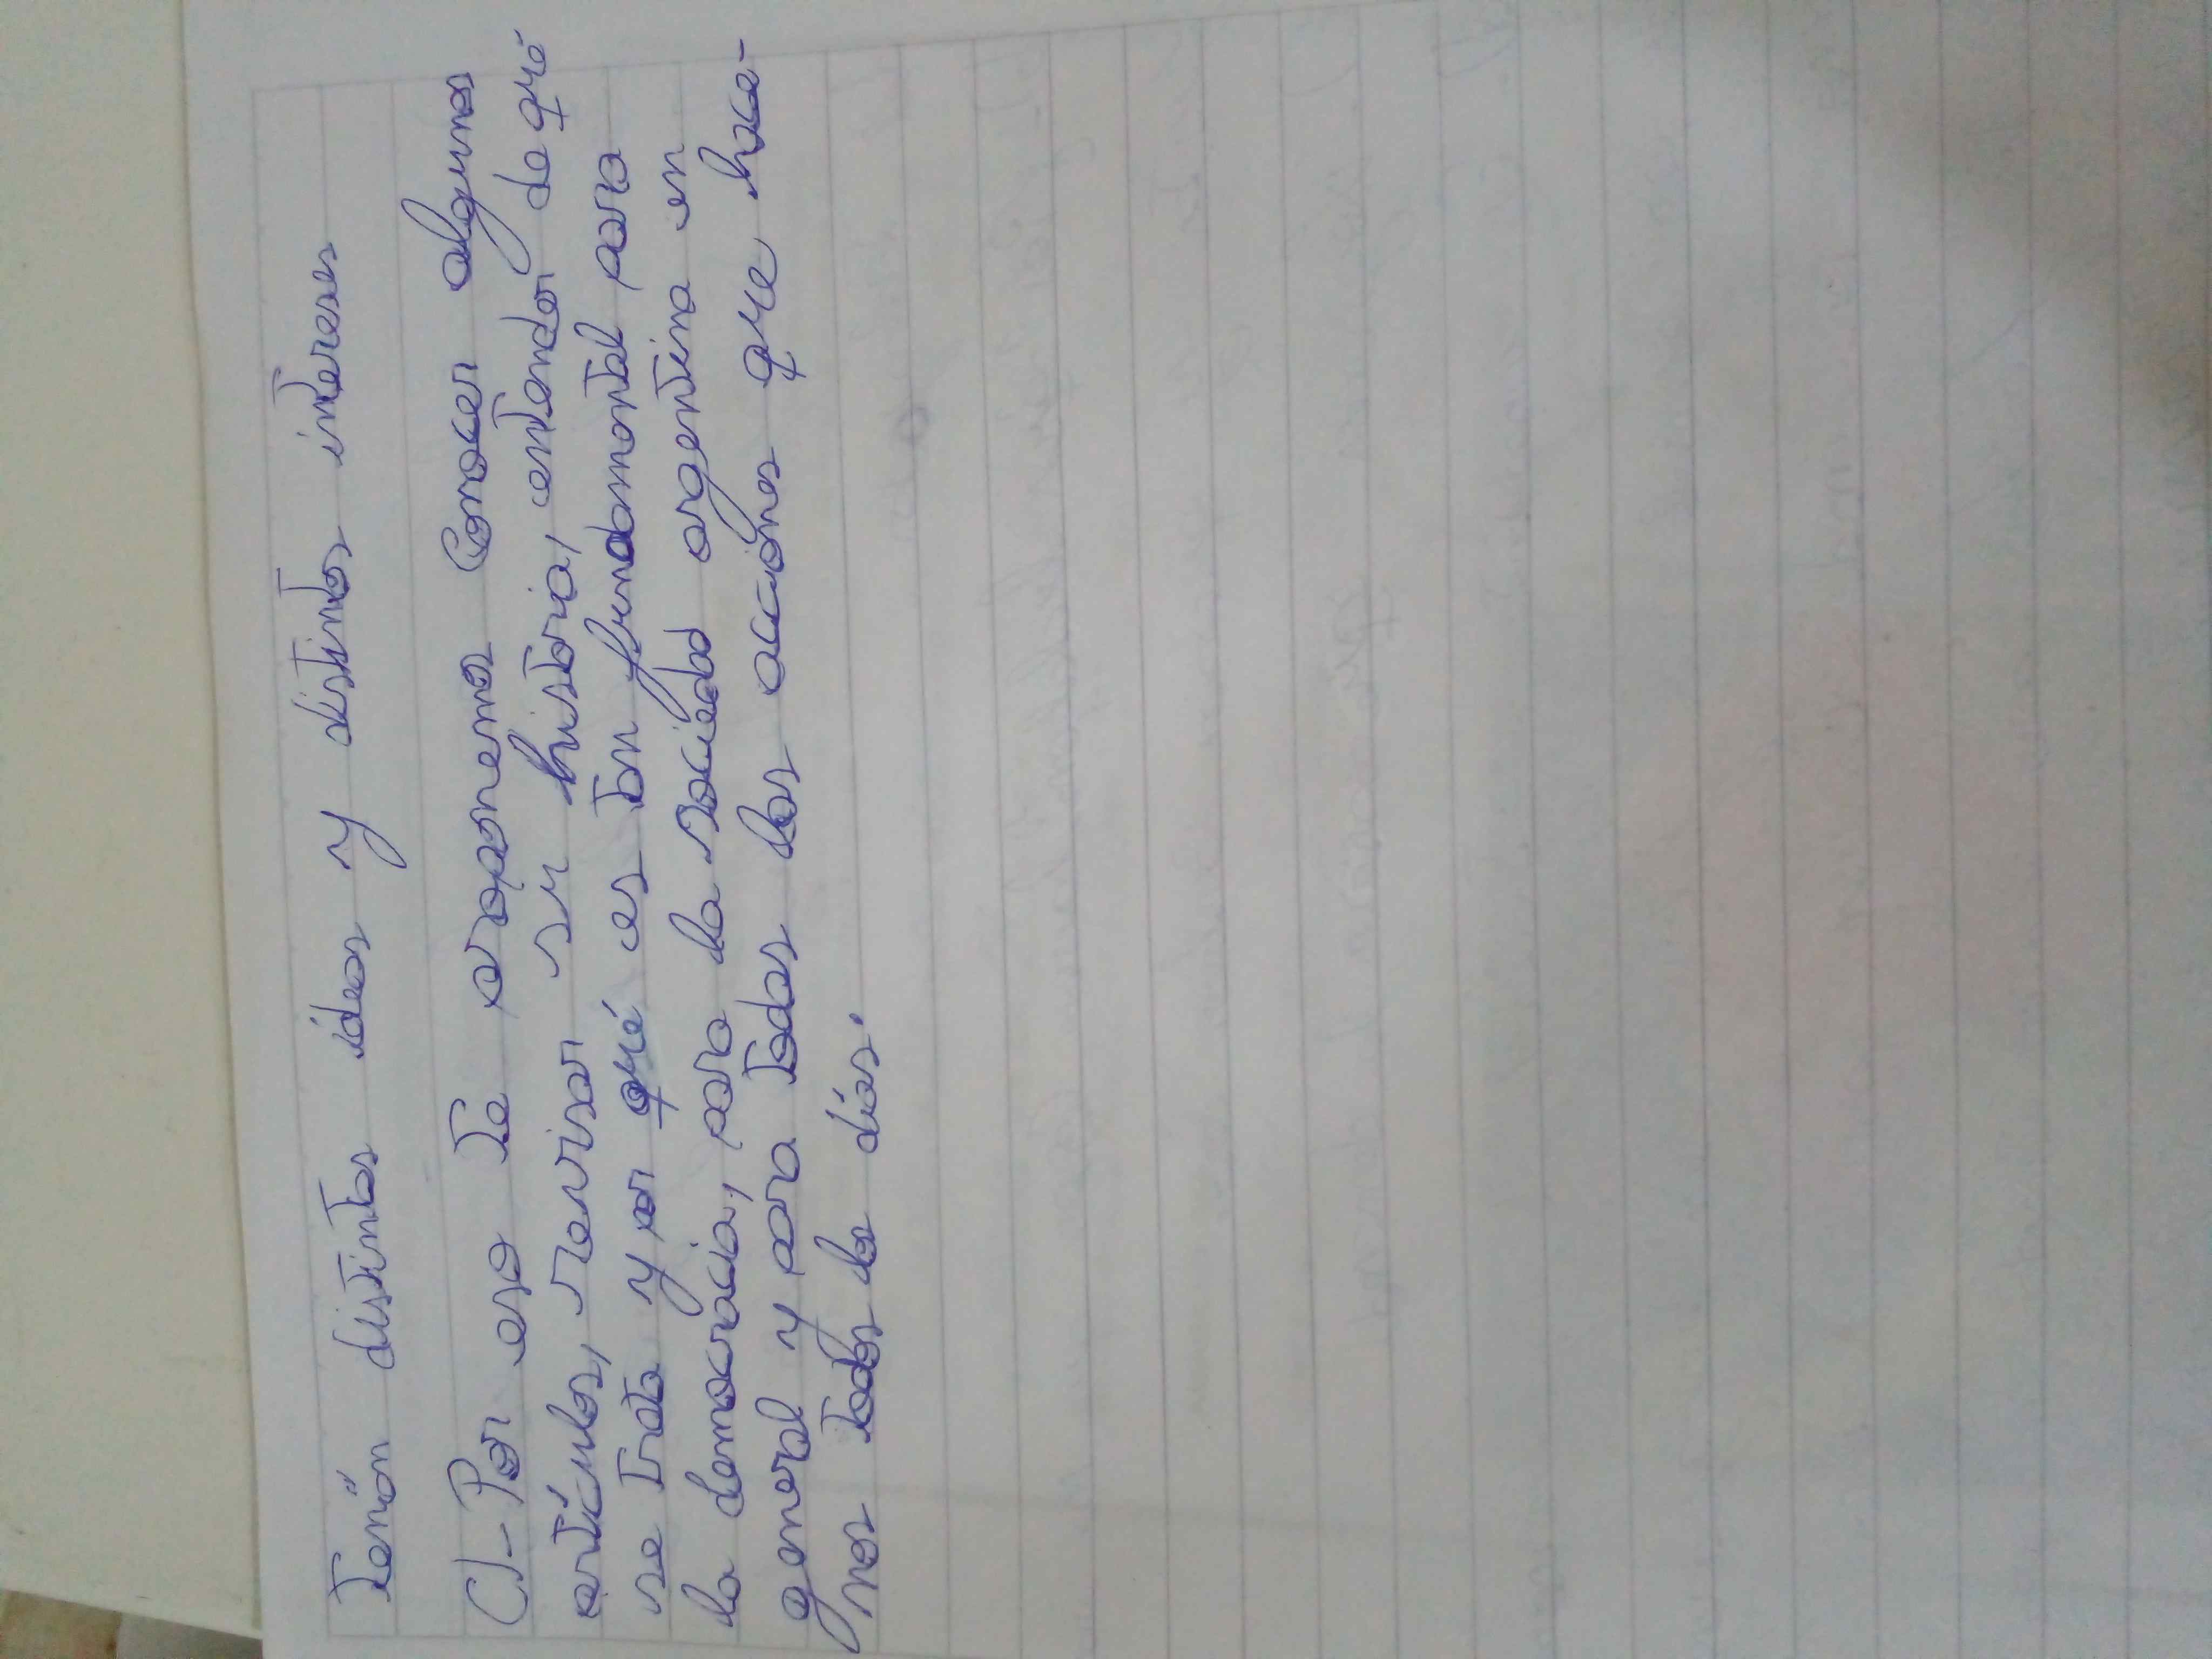 tenör distintas ideas y distintos intereses
C)- Por eso te proponemos Conocer algunos
artículos, revisar su historia, entender de qué
se trata y por qué es tan fundamental para
la democracia, para la sociedad argentina en
general y para todas las acciónes que hace-
mos todos los días.